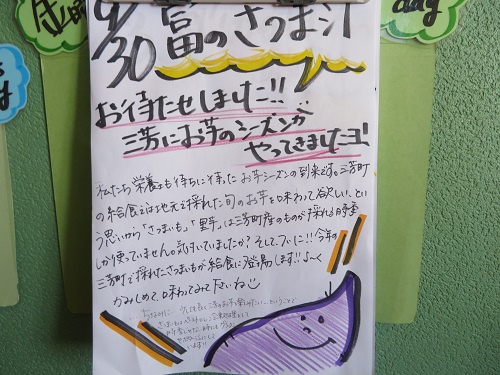 9/30 富のさつま汁
お待たせしました!!
三芳にお芋のシーズンが
やってきましたヨ!
私たち栄養士も待ちに待ったお芋シーズンの到来です。三芳町
の給食では地元で採れた旬のお芋を味わって欲しい、とい
う思いから「さつまいも」「里芋」は三芳町産のものが採れる時季
しか使っていません。気づいていましたか?そして、ついに!!今年の
三芳町で採れたさつまいもが給食に登場します!!よ〜く
かみしめて、味わってみて下さいね
day